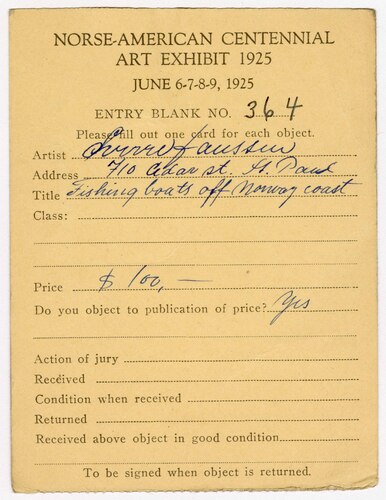 NORSE-AMERICAN CENTENNIAL
ART EXHIBIT 1925
JUNE 6-7-8-9, 1925
ENTRY BLANK NO. 364
Please fill out one card for each object.
Artist Sverre Hanssen
Address 710 Cedar st. St. Paul
Title Fishing boats off Norway coast
Class:
Price $100,—
Do you object to publication of price? Yes
Action of jury
Received
Condition when received
Returned
Received above object in good condition
To be signed when object is returned.